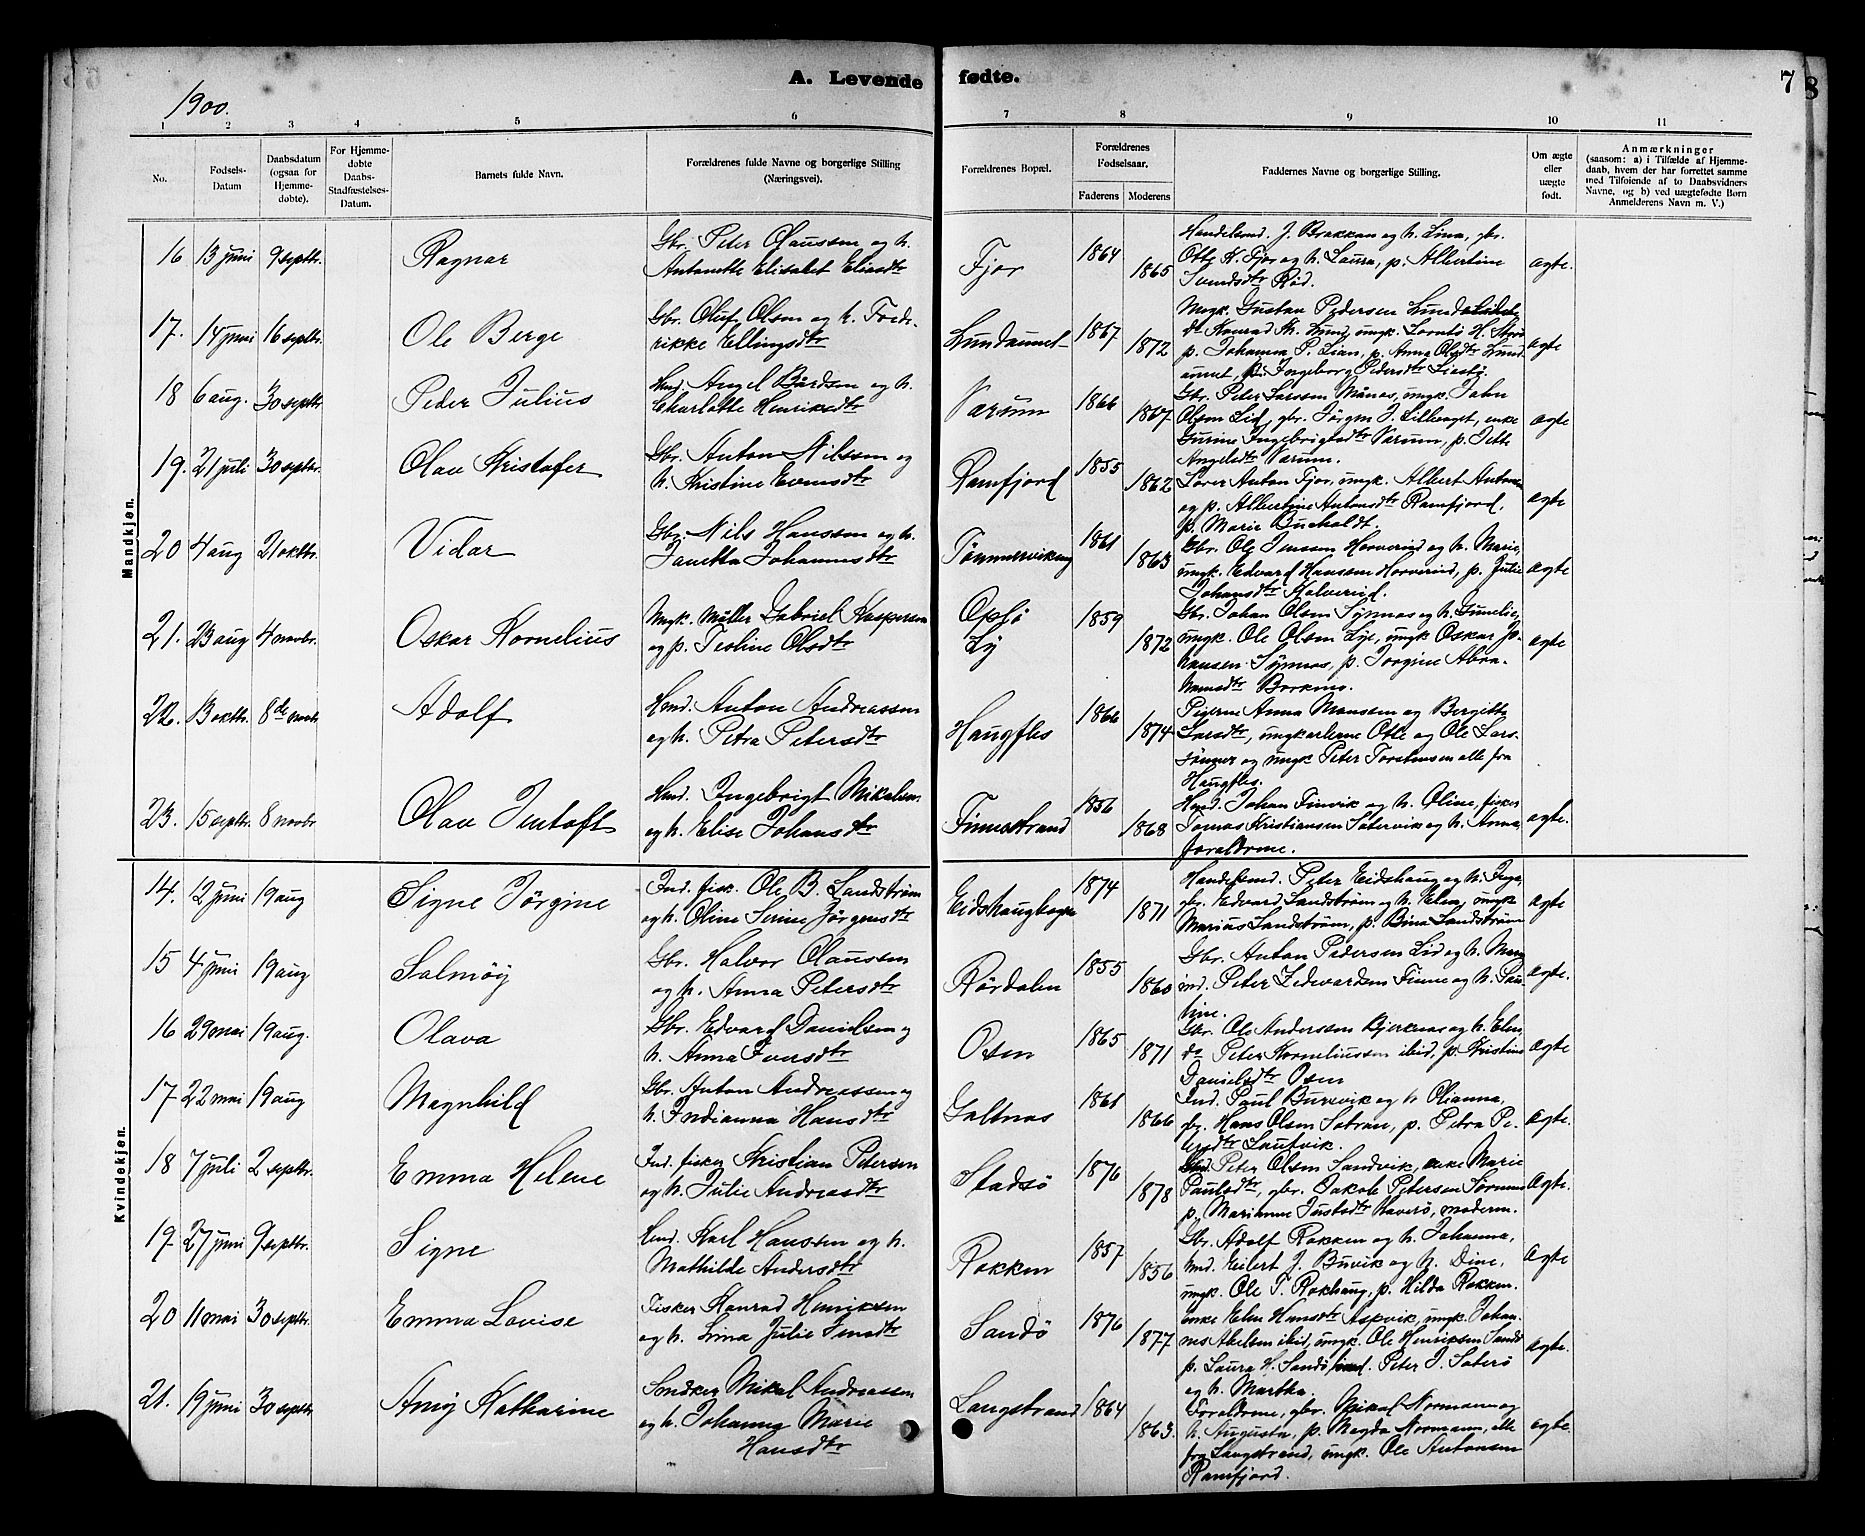 A. Levende fødte.
7
8
1900.
1 2 3 4 5 6 7 8 9 10 11
No.
Fødsels-
Datum
Daabsdatum
(ogsaa for
Hjemme-
døbte).
For Hjemme-
døbte
Daabs-
Stadfæstelses-
Datum.
Barnets fulde Navn.
Forældrenes fulde Navne og borgerlige Stilling
(Næringsvei).
Forældrenes Bopæl.
Forældrenes
Fødselsaar.
Faderens Moderens
Faddernes Navne og borgerlige Stilling.
Om ægte
eller
uægte
født.
Anmærkninger
(saasom: a) i Tilfælde af Hjemme-
daab, hvem der har forrettet samme
med Tilføiende af to Daabsvidners
Navne, og b) ved uægtefødte Børn
Anmelderens Navn m. V.)
Mandkjøn.
16 13 juni 9 septbr. Ragnar
Gbr. Peter Olaussen og h.
Antonette Elisabet Eliasdtr
Fjær 1864 1865
Handelsmd. J. Brakkan og h. Lina, gbr.
Otto K. Fjær og h. Laura, p. Albertine
Svendsdtr Rød.
ægte.
17. 14 juni 16 septbr. Ole Berge
Gbr. Oluf Olsen og h. Fred-
rikke Ellingsdtr
Lundaunet 1867 1872
Ungk. Gustav Pedersen
do Konrad Kr. Lund, ungk.
p. Johanna P. Lian, p. Anna Olsdtr Lund-
aunet, p. Ingeborg Pedersdtr
ægte
18 6 aug. 30 septbr. Peder Julius
Hmd. Angel Bårdsen og h.
Charlotte Henriksdtr
Varum 1866 1867
Gbr. Peter Larssen Månes, ungk. John
Olsen Lid, gbr. Jørgen J. enke
Gurine Ingebrigtsdtr Varum, p.
Angelsdtr Varum.
ægte
19. 21 juli 30 septbr. Olav Kristofer
Gbr. Anton Nilssen og
h. Kristine Evensdtr
Ramfjord 1855 1862
Lærer Anton Fjær, ungk. Albert Antonsen
og p. Albertine Antonsdtr Ramfjord,
p. Marie Bucholdt.
ægte
20 4 aug 21 oktbr. Vidar
Gbr. Nils Hanssen og h.
Janetta Johannesdtr
Tømmervikeng 1861 1863
Gbr. Ole Jenssen Horverid og h. Marie,
ungk. Edvard Hanssen Horverid, p. Julie
Johansdtr Kalverid.
ægte
21. 23 aug 4 novbr. Oskar Kornelius
Ungk. Møller Gabriel Kaspersen
og p. Tesline Olsdtr
Opsjø
Ly
1859 1872
Gbr. Johan Olsen Synnes og h. Gunelie,
ungk. Ole Olsen Lyø, ungk Oskar Jo-
hansen Synnes, p. Jorgine Abra-
hamsdtr Borkmo.
ægte
22. 3 oktbr. 8de novbr Adolf
Hmd. Anton Andreassen
og h. Petra Petersdtr
Haugfles 1866 1874
Pigerne Anna Monssen og Bergitta
Larsdtr, ungkarlerne Otte og Ole Lars-
sønner og ungk Peter Torstensen alle fra
Haugfles.
ægte
23. 15 septbr. 8 novbr Olav Jentoft
Hmd. Ingebrigt Mikalsen
og h. Elise Johansdtr
Finnestrand 1856 1868
Hmd. Johan Finvik og h. Oline, fisker
Tomas Kristiansen Sætervik og h. Anna,
forældrene.
ægte.
Kvindekjøn.
14. 12 juni 19 aug Signe Jørgine
Ind. fisk. Ole B. Sandstrøm
og h. Oline Serine Jørgensdtr
Eidshaugbogen 1874 1871
Handelsmd. Peter Eidshaug og h. Inga,
gbr. Edvard Sandstrøm og h. Elen, ungk
Marius Sandstrøm, p. Bina Sandstrøm
ægte
15 4 juni 19 aug Salmøy
Gbr. Halvor Olaussen
og h. Anna Petersdtr
Rørdalen 1855 1860
Gbr. Anton Pedersen Lid og h. Marie
ind. Peter Edevardsen Finne og h. Pau-
line.
ægte.
16 29 mai 19 aug. Olava
Gbr. Edvard Danielsen og
h. Anna Iversdtr
Osen 1865 1871
Gbr. Ole Anderssen Bjerknes og h. Elen,
do Peter Korneliussen ibid, p. Kristine
Danielsdtr Osen
ægte
17 22 mai 19 aug Magnhild
Gbr. Anton Andreassen og
h. Indianna Hansdtr
Galtnes 1861 1866
Ind. Paul Burevik og h Olianna,
gbr. Hans Olsen Sætran, p. Petra Pe-
tersdtr
ægte.
18 7 juli 2 septbr. Emma Helene
Ind. fisker Kristian Petersen
og h. Julie Andreasdtr
Stadsø 1876 1878
Peter Olsen Sandvik, enke Marie
Paulsdtr, gbr. Jakob Petersen
p. Marianne Justsdtr moderen.
ægte.
19. 27 juni 9 septbr. Signe
Hmd. Karl Hanssen og h.
Mathilde Andersdtr
Rakken 1857 1856
Gbr. Adolf Rakken og h. Johanna,
hmd. Eilert J. Buvik og h. Dine,
ungk. Ole T. Rokhaug, p. Hilda Rakken.
ægte
20 11 mai 30 septbr. Emma Lovise
Fisker Konrad Henriksen
og h. Lina Julie Jensdtr
Sandø 1876 1877
enke Elen Hansdtr Aspvik, ungk. Johan-
nes Akselsen ibid, ungk. Ole Henriksen Sandø
p. Laura H. Sandø, ind. Peter J. Sæterø
og h. Martha.
ægte.
21. 19 juni 30 septbr. Amøy Katharine
Snedker Mikal Andreassen
og h. Johanna Marie
Hansdtr
Langstrand 1864 1863.
Forældrene, gbr. Mikal Normann og
h. Augusta, p. Magda Normann, alle
fra Langstrand, ungk. Ole Antonsen
Ramfjord.
ægte.